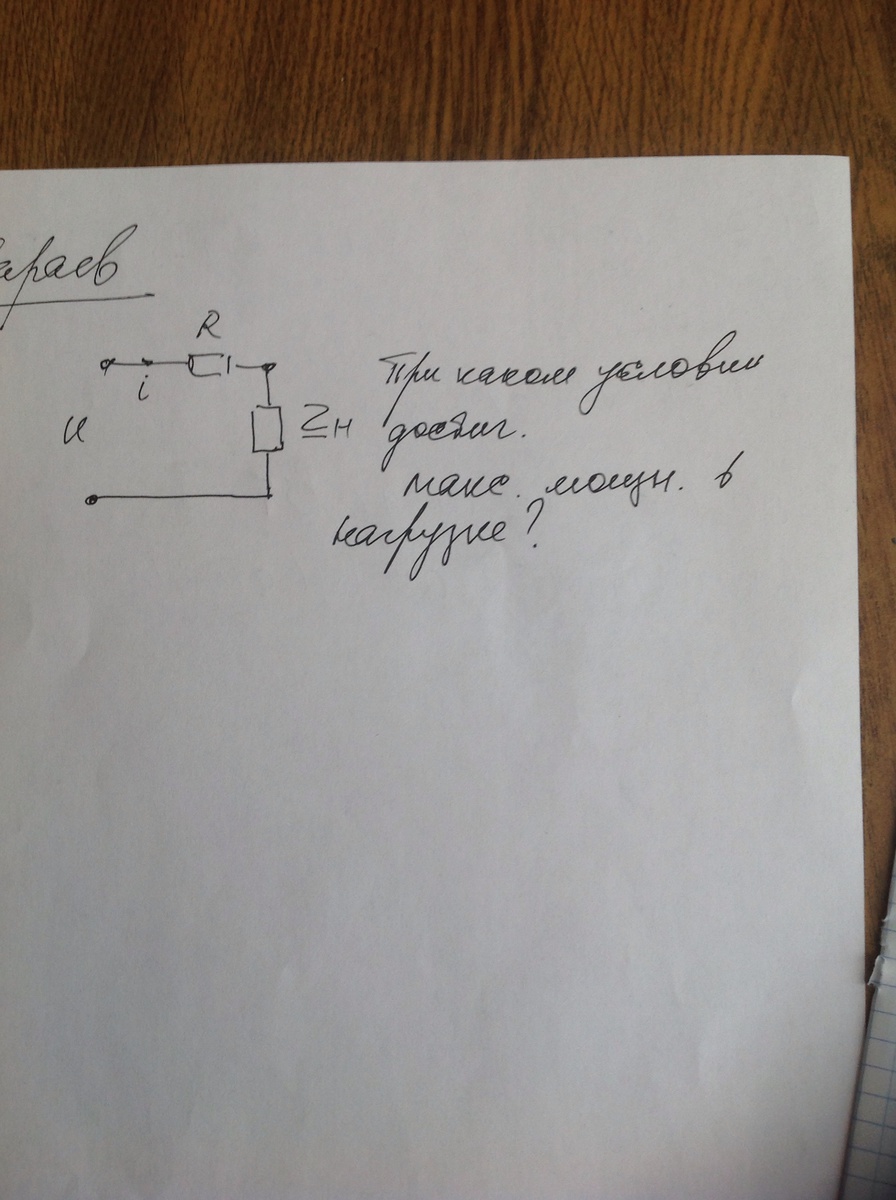 R
i
u
Zн
При каком условии
достиг.
макс. мощн. в
нагрузке?